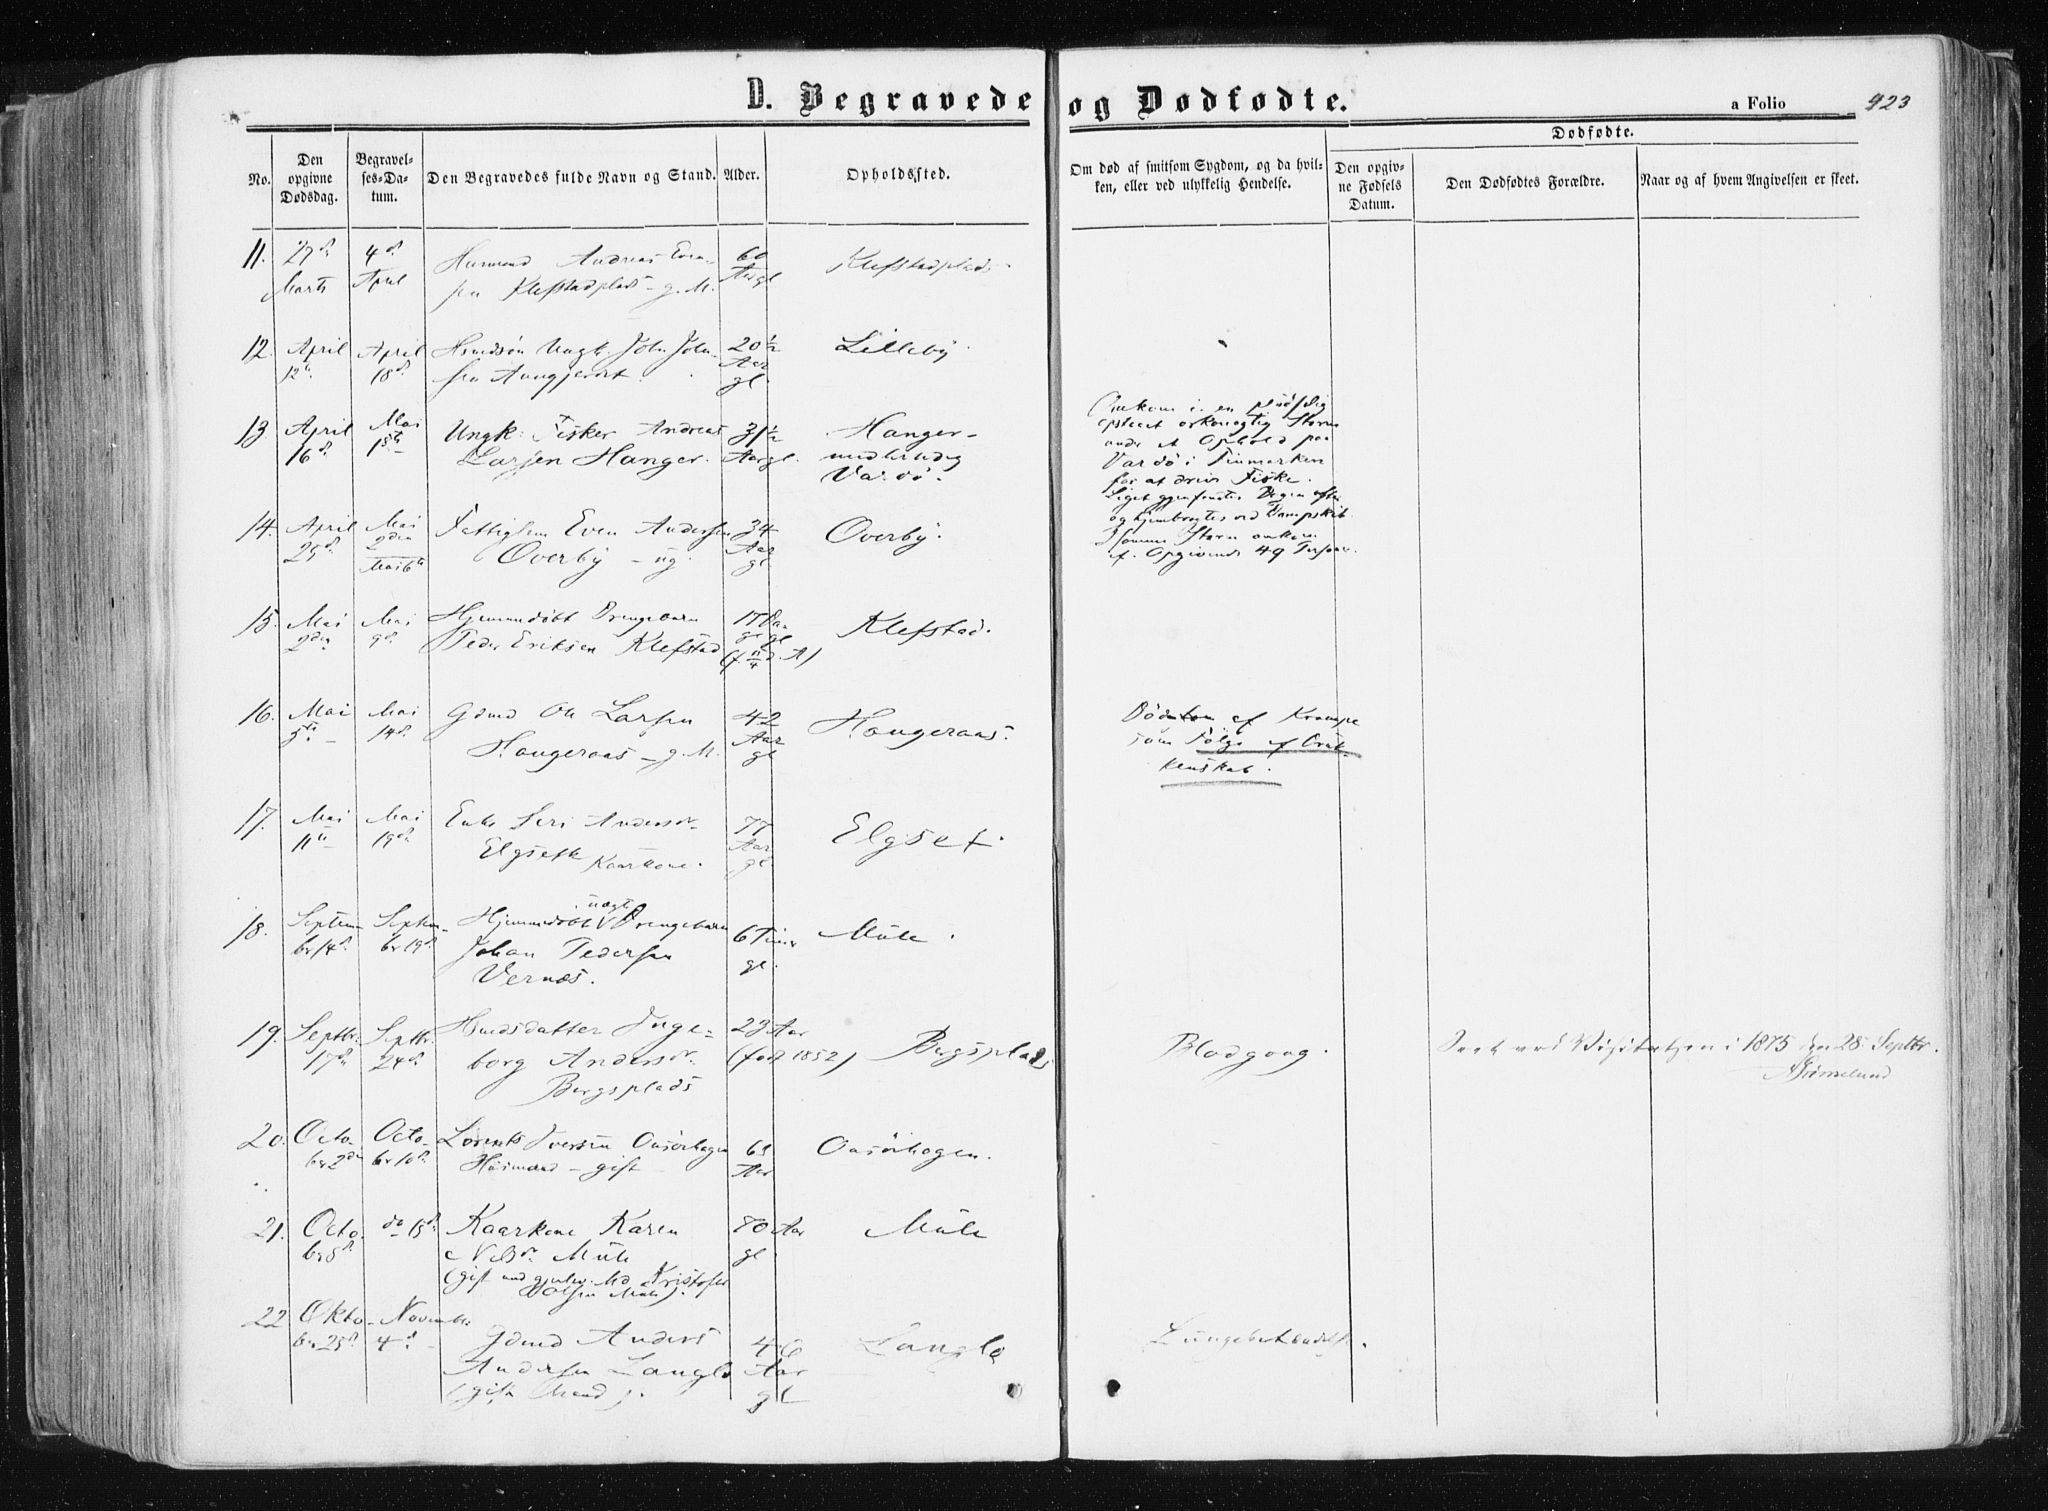 D. Begravede og Dødfødte.
a Folio 423
No.
Den opgivne Dødsdag.
Begravelses-Datum.
Den Begravedes fulde Navn og Stand.
Alder.
Opholdssted.
Om død af smitsom Sygdom, og da hvilken, eller ved ulykkelig Hendelse.
Dødfødte.
Den opgivne Fødsels Datum.
Den Dødfødtes Forældre.
Naar og af hvem Angivelsen er skeet.
11. 27d Marts
4d April
Husmand Andreas
Klefstadplads g. M.
60 Aar gl
Klefstadplads
12. April 12te
April 18d
Ungk. John John-
sen Aungjerdet.
20½ Aar gl.
Lilleby
13 April 16d
Mai 15te
Ungk. Fisker Andreas
Larsen Hanger.
31½ Aar gl.
Hanger-
midlertidig
Vardö.
Omkom i en pludselig
opstaaet orkanagtig Storm
under et Ophold paa
Vardö i Finmarken
for at drive Fiske.
Liget gjenfandtes Dagen efter
og hjembragtes ved Dampskib.
I samme Storm omkom
ef. Opgivende 49 Personer.
14. April 25d
Mai 2den
Mai 6te
Fattiglem Even Andersen
Overby - ug.
34 Aar gl.
Overby.
15. Mai 2den
Mai 9d
Hjemmedöbt Drengebarn
Peder Eriksen Klefstad
17 Da-
ge gl
Klefstad.
16. Mai 5te
Mai 14d
Gdmd Ole Larsen
Haugeraas - g. M.
42 Aar gl
Haugeraas.
Död af Krampe
som Fölge af Drik-
kenskab.
17. Mai 11te
Mai 19d
Enke Seri Andersdr.
Elgseth Kaarkone.
77 Aar gl
Elgset.
18. Septem-
ber 14d
Septem-
ber 19d
Hjemmedöbt uægte Drengebarn
Johan Pedersen
Vernæs.
6 Timer gl.
Mule.
19. Septbr. 17d
Septbr. 24d
Husmdsdatter Inge-
borg Andersdr.
Bergsplads
23 Aar
(fød 1852)
Bergsplads
Blodgang.
Seet ved Visitatsen i 1875 den 28. Septbr.
Grimelund
20. Octo-
ber 2den
Octo-
ber 10d
Lorents Iversen Ousörhagen
Husmand - gift
Aar
Ousörhagen.
21. Octo-
ber 8d
do 15d
Kaarkone Karen
Nilsdr. Mule
Kristofer
Olsen Mule).
80 Aar gl
Mule
22 Okto-
ber 25d
November
4d
Gdmd Anders
Andersen Langlo
(gift Mand).
46 Aar gl
Langlo
Lungebetændelse.